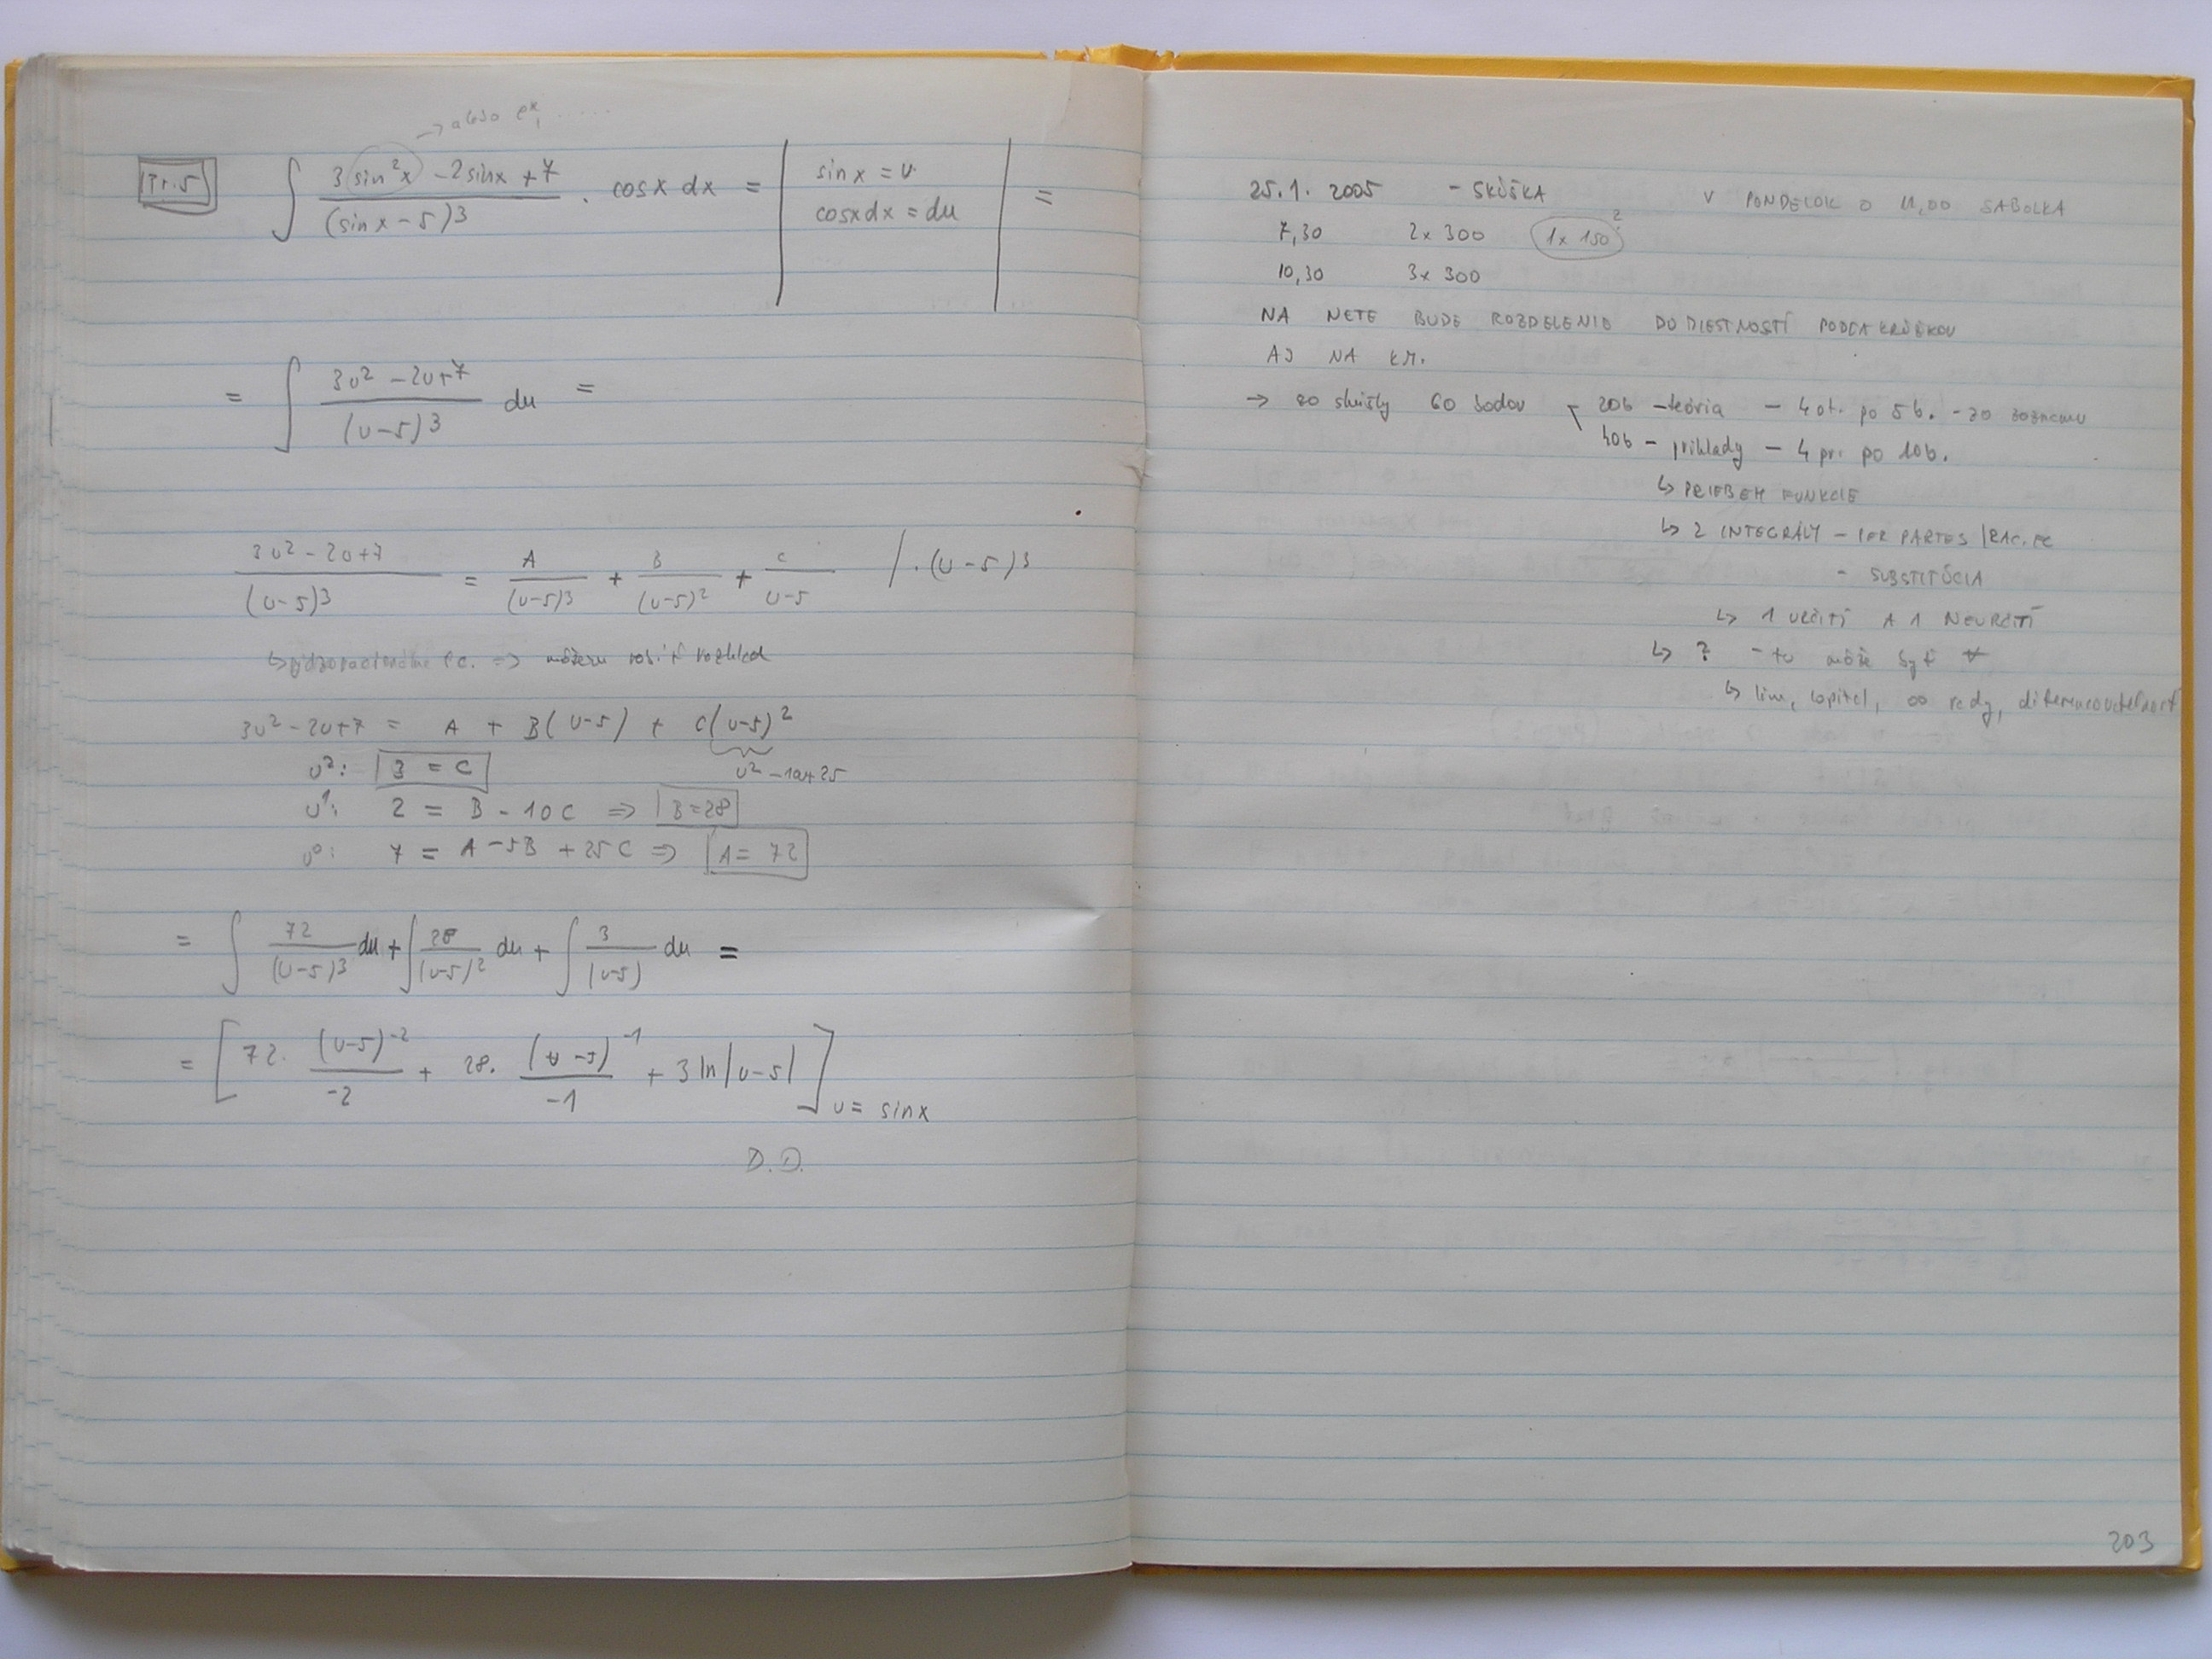 → alebo eˣ, .....
Pr.5 ∫ (3sin²x - 2sinx + 7)/(sinx - 5)³ . cosx dx = | sinx = u
cosxdx = du | =
= ∫ (3u² - 2u + 7)/(u-5)³ du =
(3u² - 2u + 7)/(u-5)³ = A/(u-5)³ + B/(u-5)² + C/(u-5) / . (u-5)³
↳ rýdzoracionálna fc. => môžem robiť rozklad
3u² - 2u + 7 = A + B(u-5) + C(u-5)²
u² - 10u + 25
u²: 3 = C
u¹: 2 = B - 10C => B = 28
u⁰: 7 = A - 5B + 25C => A = 72
= ∫ 72/(u-5)³ du + ∫ 28/(u-5)² du + ∫ 3/(u-5) du =
= [72. (u-5)⁻²/-2 + 28. (u-5)⁻¹/-1 + 3 ln|u-5|] u = sinx
D.Ú.
25.1. 2005 - SKÚŠKA V PONDELOK O 11,00 SABOLKA
7,30 2x 300 1x 150 ?
10,30 3x 300
NA NETE BUDE ROZDELENIE DO MIESTNOSTÍ PODĽA KRÚŽKOV
AJ NA KM.
→ zo skúšky 60 bodov - 20b - teória - 4 ot. po 5b. - zo zoznamu
40b - príklady - 4 pr. po 10b.
↳ PRIEBEH FUNKCIE
↳ 2 INTEGRÁLY - PER PARTES / RAC. FC
- SUBSTITÚCIA
↳ 1 URČITÝ A 1 NEURČITÝ
↳ ? - tu môže byť ∀
↳ lim, lopitel, ∞ rady, diferencovateľnosť
203